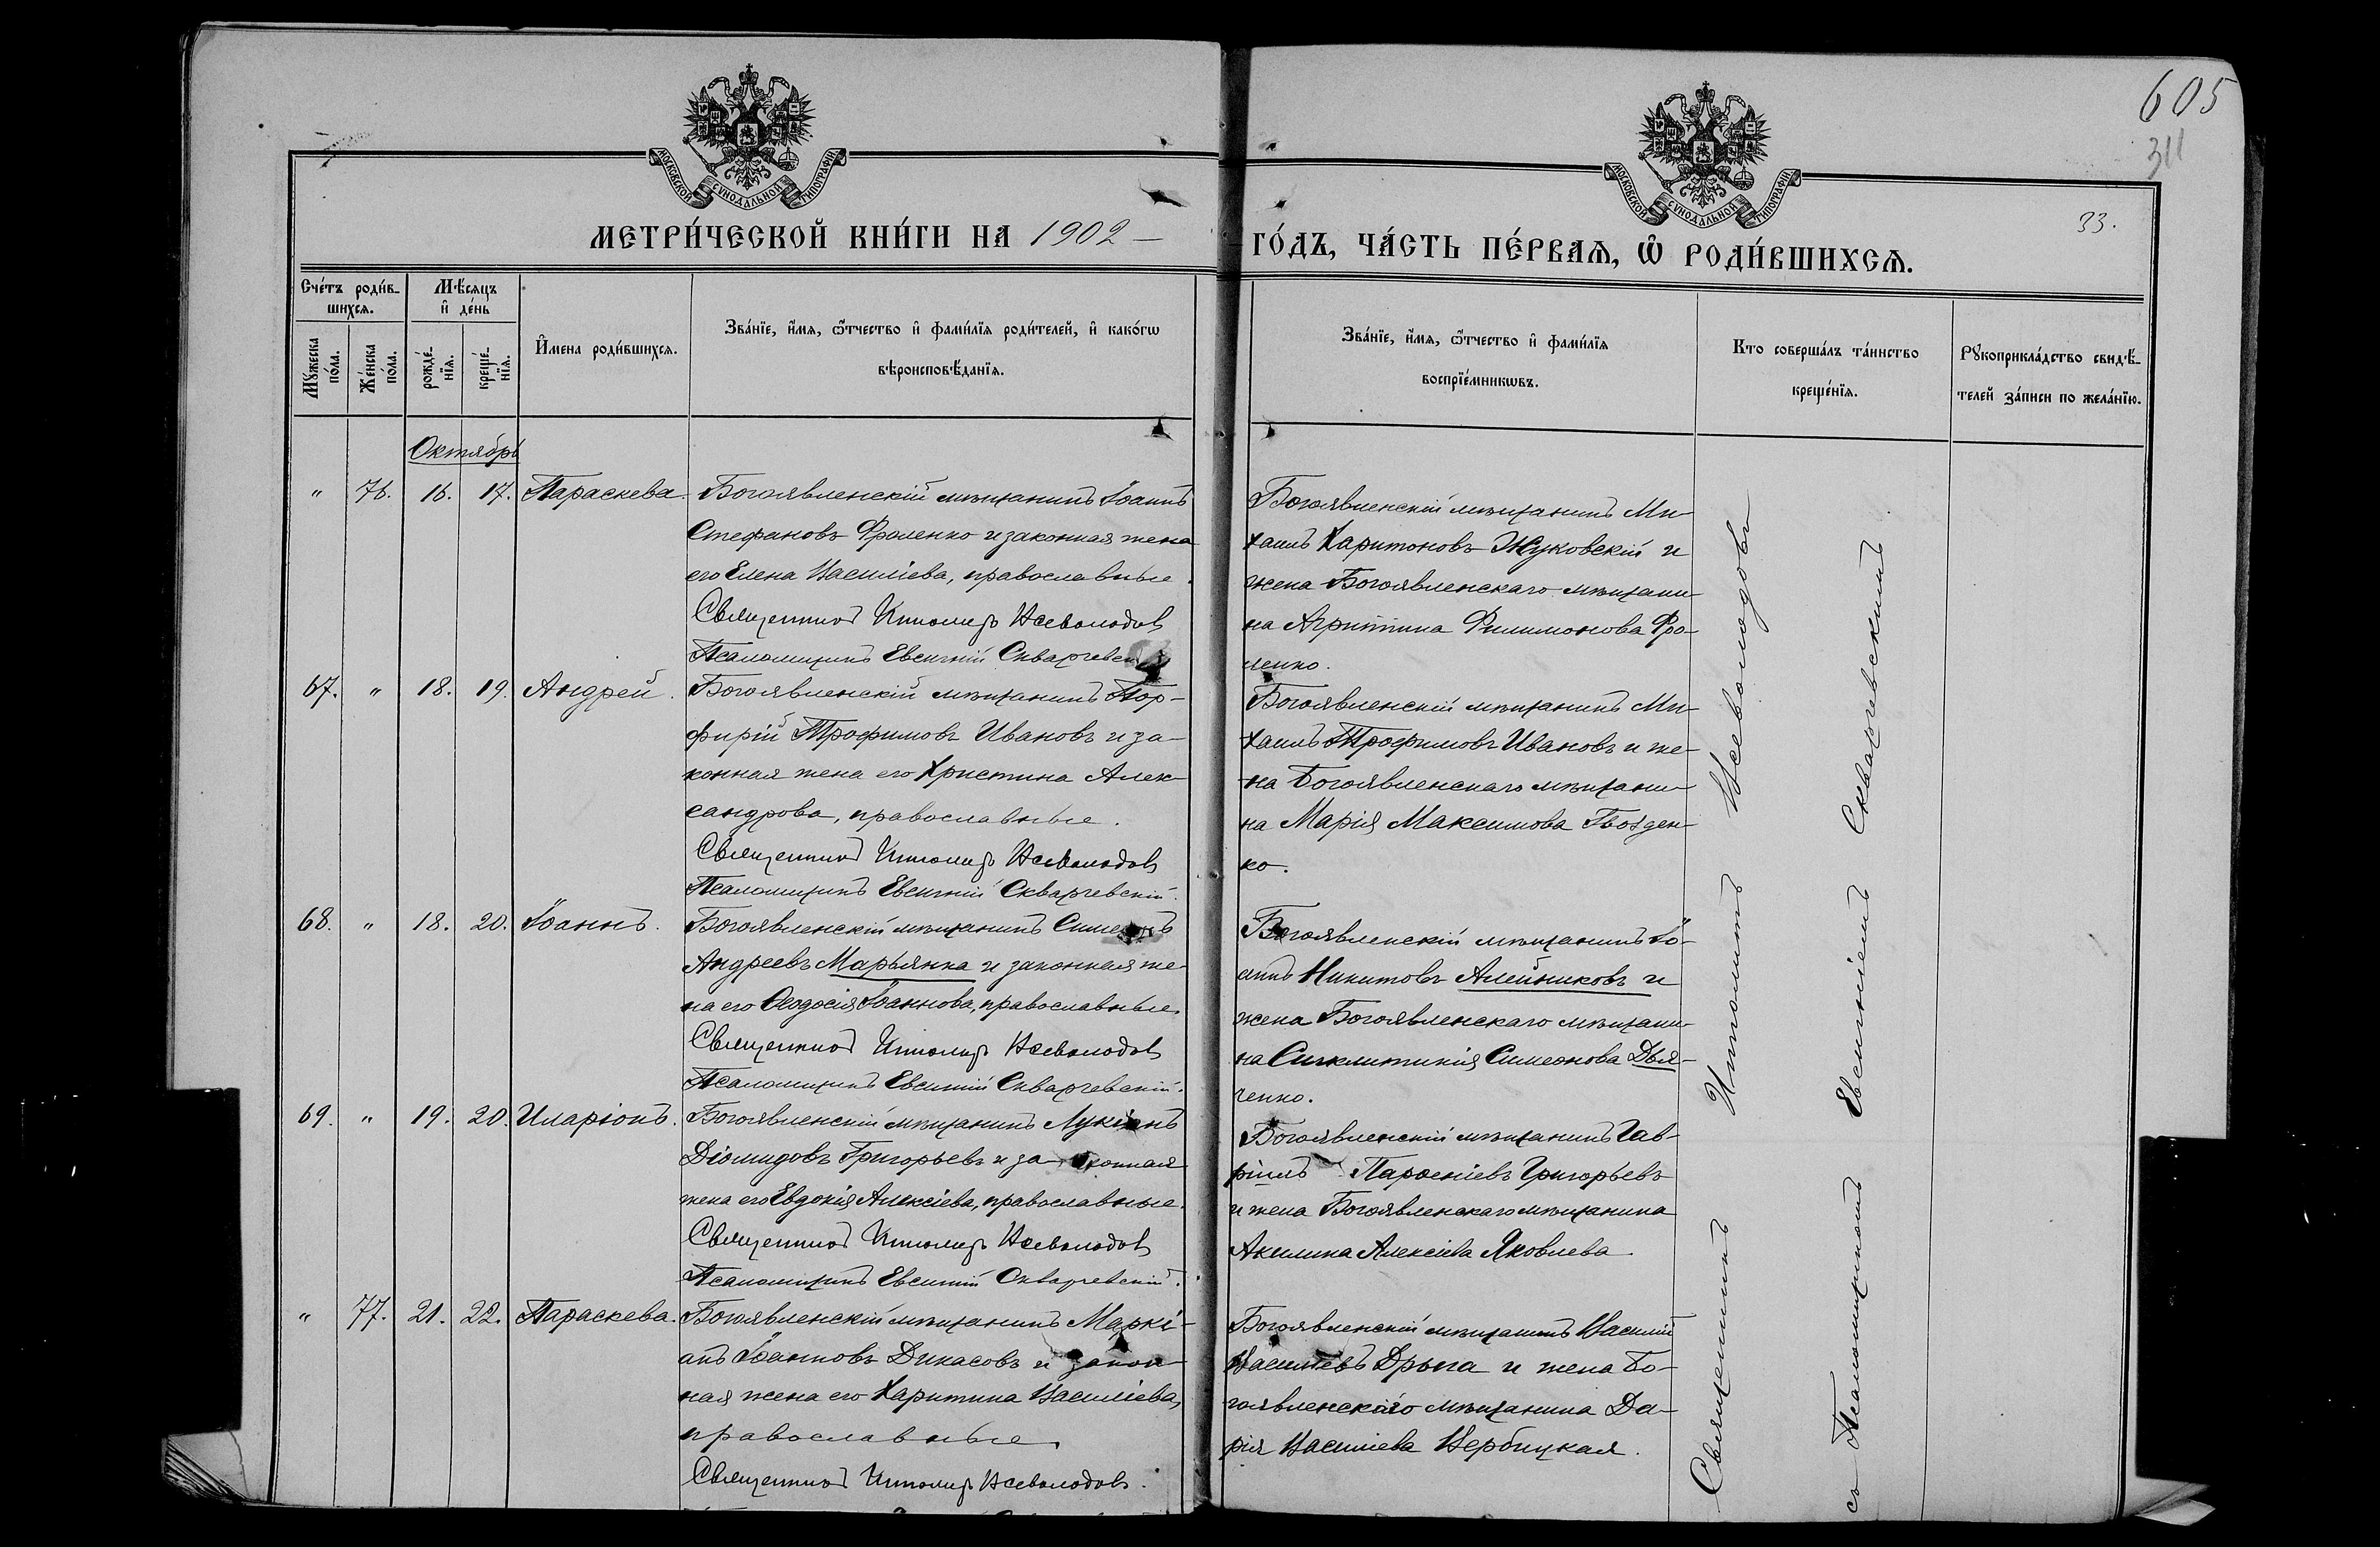 605
311
33.
МОСКОВСКОЙ СѴНОДАЛЬНОЙ ТИПОГРАФІИ
МОСКОВСКОЙ СѴНОДАЛЬНОЙ ТИПОГРАФІИ
МЕТРИ́ЧЕСКОЙ КНИ́ГИ НА 1902 –
ГО́ДЪ, ЧА́СТЬ ПЕ́РВАѦ, Ѽ РОДИ́ВШИХСѦ.
Сче́тъ роди́в-
шихсѧ.
Мꙋ́жеска по́ла.
Же́нска по́ла.
Мѣ́сѧцъ
и҆ де́нь
рожде́-
нїѧ.
креще́-
нїѧ.
И҆́мена роди́вшихсѧ.
Зва́нїе, и҆́мѧ, ѻ҆́тчество и҆ фами́лїѧ роди́телей, и҆ како́гѡ
вѣроисповѣ́данїѧ.
Зва́нїе, и҆́мѧ, ѻ҆́тчество и҆ фами́лїѧ
воспрїе́мникѡвъ.
Кто соверша́лъ та́инство
креще́нїѧ.
Рꙋкоприкла́дство свидѣ́-
телей за́писи по жела́нїю.
Октябрь
" 76. 16. 17. Параскева. Богоявленскій мѣщанинъ Іоаннъ
Стефановъ Фроленко и законная жена
его Елена Василіева, православные.
Священникъ Ипполитъ Всеволодовъ
Псаломщикъ Евсигній Скваргевскій
Богоявленскій мѣщанинъ Ми-
хаилъ Харитоновъ Жуковскій и
жена Богоявленскаго мѣщани-
на Агриппина Филимонова Фро-
ленко.
67. " 18. 19. Андрей. Богоявленскій мѣщанинъ Пор-
фирій Трофимовъ Ивановъ и за-
конная жена его Христина Алек-
сандрова, православные.
Священникъ Ипполитъ Всеволодовъ
Псаломщикъ Евсигній Скваргевскій.
Богоявленскій мѣщанинъ Ми-
хаилъ Трофимовъ Ивановъ и же-
на Богоявленскаго мѣщани-
на Марія Максимова Гвозден-
ко.
68. " 18. 20. Іоаннъ. Богоявленскій мѣщанинъ Симеонъ
Андреевъ Марьянка и законная же-
на его Ѳеодосія Іоаннова, православные.
Священникъ Ипполитъ Всеволодовъ
Псаломщикъ Евсигній Скваргевскій.
Богоявленскій мѣщанинъ Іо-
аннъ Никитовъ Алейниковъ и
жена Богоявленскаго мѣщани-
на Синклитикія Симеонова Дья-
ченко.
69. " 19. 20. Иларіонъ. Богоявленскій мѣщанинъ Лукіанъ
Діомидовъ Григорьевъ и законная
жена его Евдокія Алексіева, православные.
Священникъ Ипполитъ Всеволодовъ
Псаломщикъ Евсигній Скваргевскій.
Богоявленскій мѣщанинъ Гав-
ріилъ Парѳеніевъ Григорьевъ
и жена Богоявленскаго мѣщанина
Акилина Алексіева Яковлева.
" 77. 21. 22. Параскева. Богоявленскій мѣщанинъ Маркі-
анъ Іоанновъ Дикасовъ и закон-
ная жена его Харитина Василіева,
православные.
Священникъ Ипполитъ Всеволодовъ.
Богоявленскій мѣщанинъ Василій
Василіевъ Дрыга и жена Бо-
гоявленскаго мѣщанина Да-
рія Василіева Вербицкая.
Священникъ Ипполитъ Всеволодовъ
съ Псаломщикомъ Евсигніемъ Скваргевскимъ.